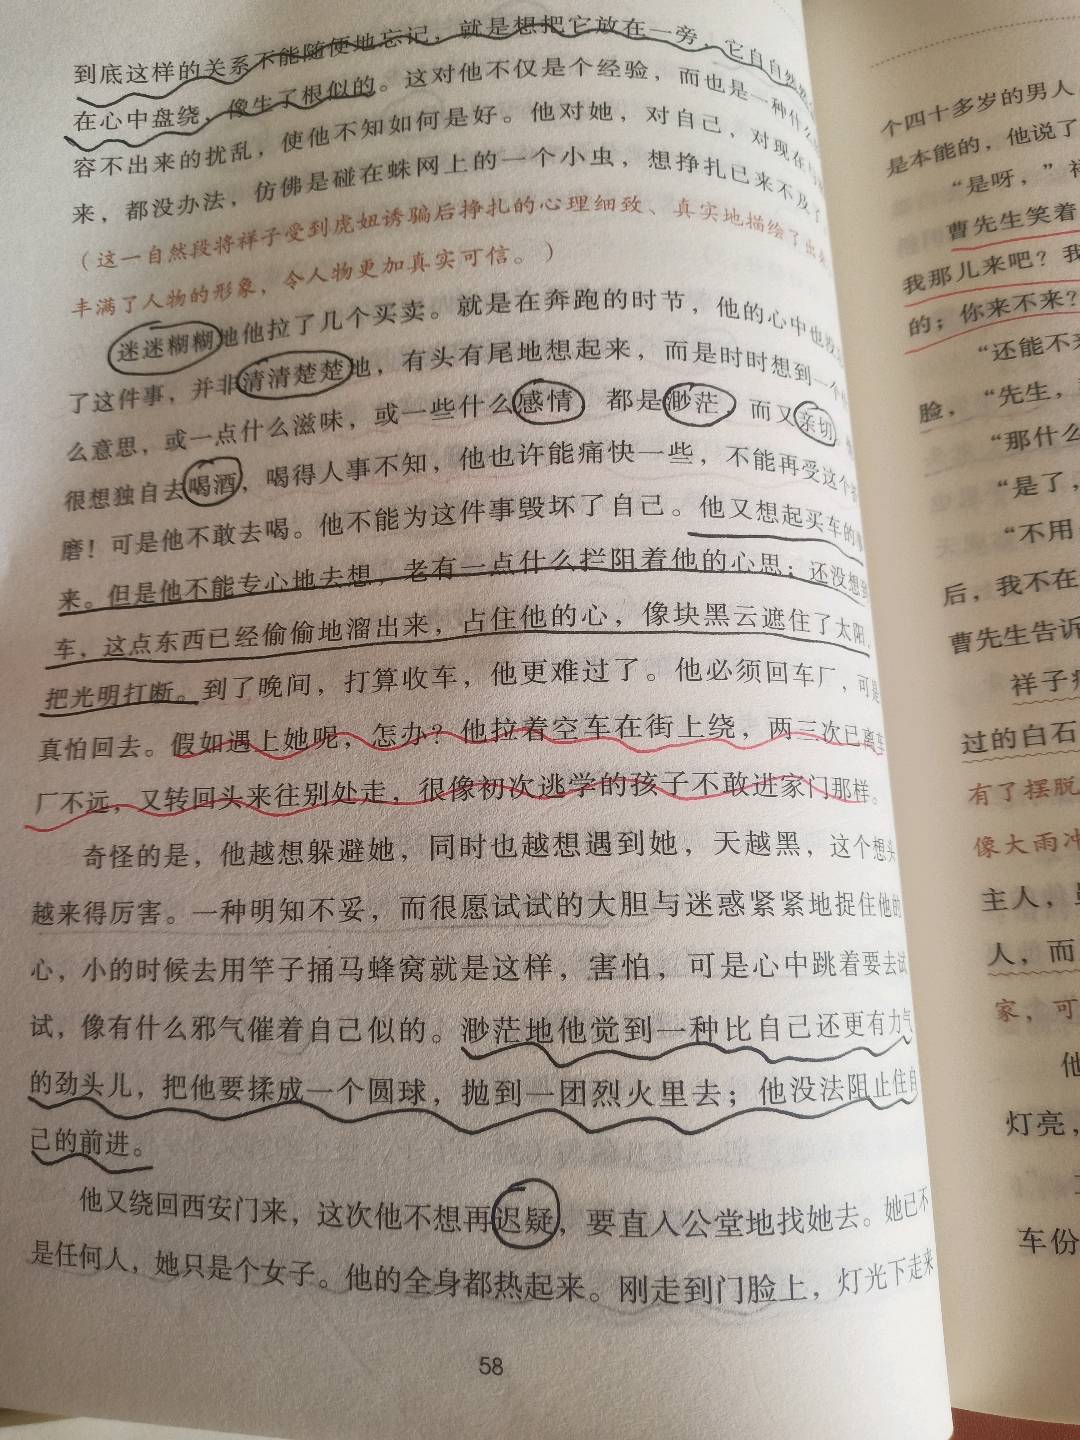 到底这样的关系不能随便地忘记，就是想把它放在一旁，它自自然然
在心中盘绕，像生了根似的。这对他不仅是个经验，而也是一种什么
容不出来的扰乱，使他不知如何是好。他对她，对自己，对现在与
来，都没办法，仿佛是碰在蛛网上的一个小虫，想挣扎已来不及了
（这一自然段将祥子受到虎妞诱骗后挣扎的心理细致、真实地描绘了出来，
丰满了人物的形象，令人物更加真实可信。）
迷迷糊糊地他拉了几个买卖。就是在奔跑的时节，他的心中也
了这件事，并非清清楚楚地，有头有尾地想起来，而是时时想到一个
么意思，或一点什么滋味，或一些什么感情 都是渺茫，而又亲切
很想独自去喝酒，喝得人事不知，他也许能痛快一些，不能再受这个
磨！可是他不敢去喝。他不能为这件事毁坏了自己。他又想起买车的
来。但是他不能专心地去想，老有一点什么拦阻着他的心思；还没想到
车，这点东西已经偷偷地溜出来，占住他的心，像块黑云遮住了太阳，
把光明打断。到了晚间，打算收车，他更难过了。他必须回车厂，可是
真怕回去。假如遇上她呢，怎办？他拉着空车在街上绕，两三次已离车
厂不远，又转回头来往别处走，很像初次逃学的孩子不敢进家门那样。
奇怪的是，他越想躲避她，同时也越想遇到她，天越黑，这个想头
越来得厉害。一种明知不妥，而很愿试试的大胆与迷惑紧紧地捉住他的
心，小的时候去用竿子捅马蜂窝就是这样，害怕，可是心中跳着要去试
试，像有什么邪气催着自己似的。渺茫地他觉到一种比自己还更有力气
的劲头儿，把他要揉成一个圆球，抛到一团烈火里去；他没法阻止住自
己的前进。
他又绕回西安门来，这次他不想再迟疑，要直入公堂地找她去。她已不
是任何人，她只是个女子。他的全身都热起来。刚走到门脸上，灯光下走来
58
个四十多岁的男人
是本能的，他说了
“是呀，”
曹先生笑着
我那儿来吧？
的；你来不来？
“还能不
脸，“先生，
“那什么
“是了，
“不用
后，我不在
曹先生告诉
祥子
过的白石
有了摆脱
像大雨冲
主人，
人，而
家，可
他
灯亮，
车份